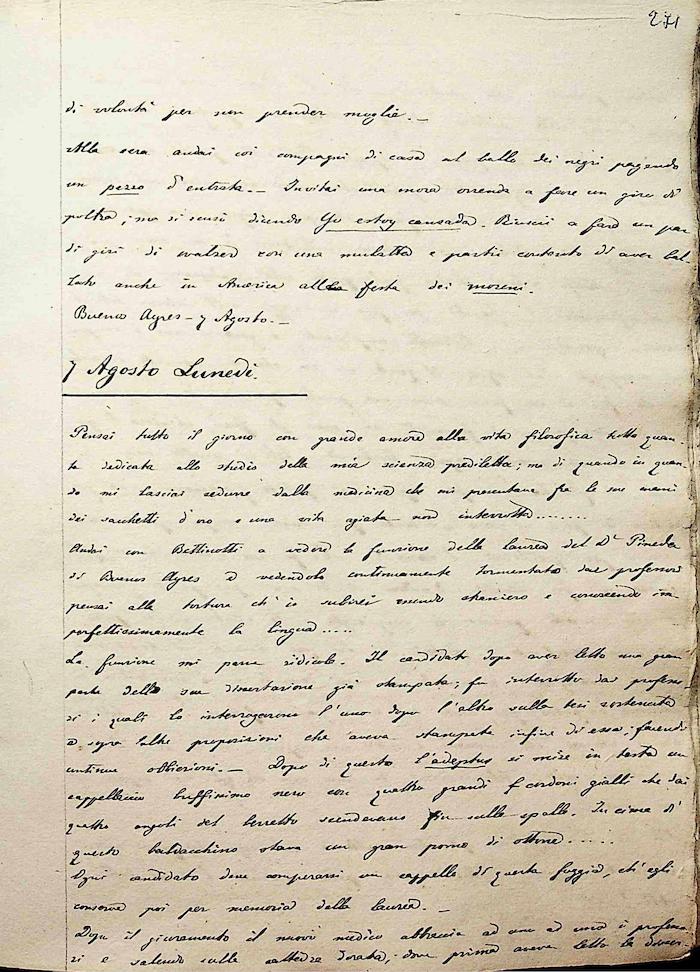 271
di volontà per non prender moglie. —
Alla sera andai coi compagni di casa al ballo dei negri pagando
un pezzo d'entrata. — Invitai una mora orrenda a fare un giro di
poltra; ma si scusò dicendo Yo estoy cansada. Riuscii a fare un par
di giri di walzer con una mulatta e partii contento di aver bal-
lato anche in America alla festa dei moreni.
Buenos Ayres - 7 Agosto. —
7 Agosto Lunedì.
Pensai tutto il giorno con grande amore alla vita filosofica tutta quan-
ta dedicata allo studio della mia scienza prediletta; ma di quando in quan-
do mi lasciai sedurre dalla medicina che mi presentava fra le sue mani
dei sacchetti d'oro e una vita agiata non interrotta........
Andai con Bettinotti a vedere la funzione della laurea del Dr Pineda
di Buenos Ayres e vedendolo continuamente tormentato dai professori
pensai alla tortura ch'io subirei essendo straniero e conoscendo im-
perfettissimamente la lingua.....
La funzione mi parve ridicola. Il candidato dopo aver letto una gran
parte della sua dissertazione già stampata; fu interrotto dai professo-
ri i quali lo interrogarono l'uno dopo l'altro sulla tesi sostenuta
e sopra altre proposizioni che aveva stampate infine di essa; facendo
continue obbiezioni. — Dopo di questo l'adeptus si mise in testa un
cappellaccio buffissimo nero con quattro grandi cordoni gialli che dai
quattro angoli del berretto scendevano fin sulle spalle. In cima di
questo baldacchino stava un gran pomo di ottone.....
Ogni candidato deve comperarsi un cappello di questa foggia, ch'egli
conserva poi per memoria della laurea. —
Dopo il giuramento il nuovo medico abbraccia ad uno ad uno i professo-
ri e salendo sulla cattedra dorata, dove prima aveva letto la disser-